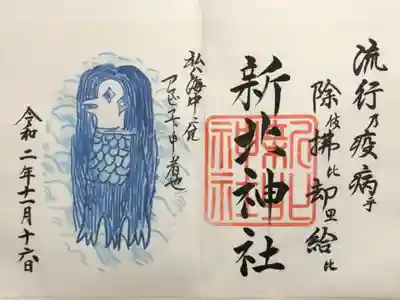 流行乃疫病乎
除伎拂比却里給比
新北神社
新北
神社
私ハ海中ニ住
アマビヱト申者也
令和二年十一月十六日